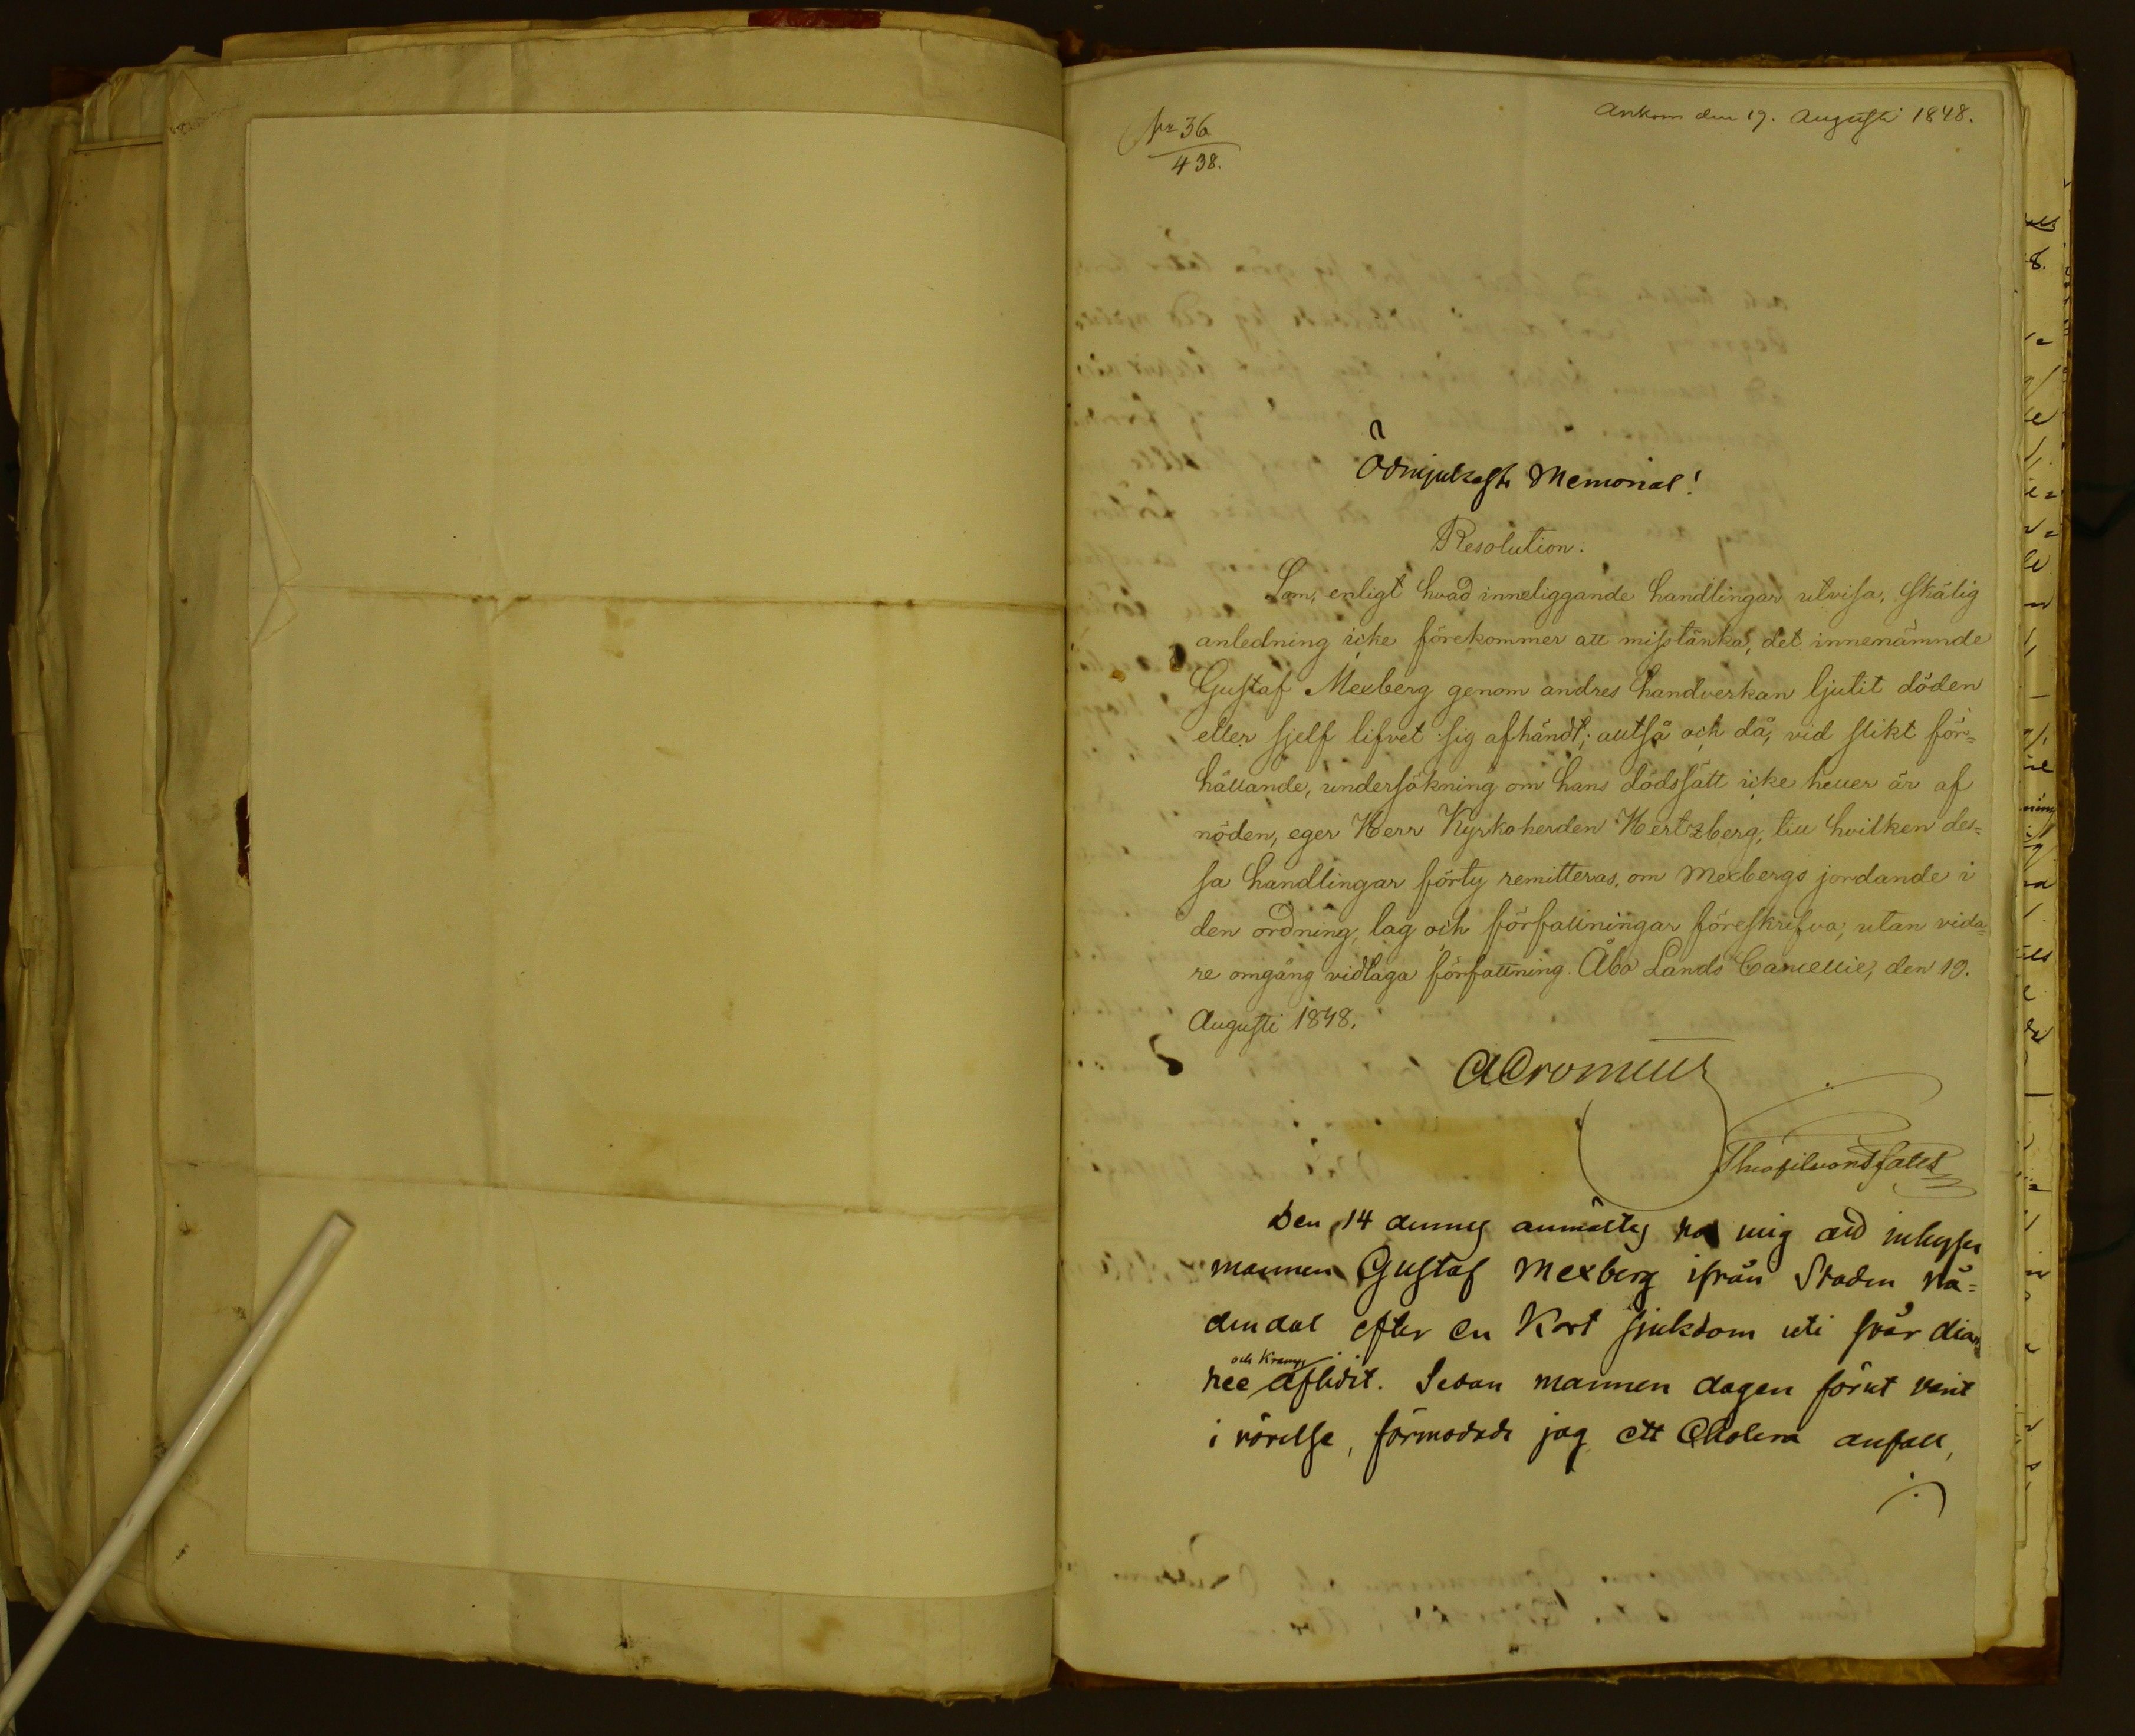 Ankom den 19. Augusti 1848.
No 36
438.
Ödmjukaste Memorial!
Resolution.
Som, enligt hvad inneliggande handlingar utvisa, skälig
anledning icke förekommer att misstänka, det innenämnde
Gustaf Mexberg genom andres handverkan ljutit döden
eller sjelf lifvet sig afhändt; alltså och då, vid slikt för=
hållande, undersökning om hans dödssätt icke heller är af
nöden, eger Herr Kyrkoherden Hertzberg, till hvilken des=
sa handlingar förty remitteras, om Mexbergs jordande i
den ordning, lag och författningar föreskrifva, utan vida=
re omgång vidtaga författning. Åbo Lands Cancellie, den 19.
Augusti 1848.
ACronstedt
Den 14 dennes anmältes hos mig att inhyses
mannen Gustaf Mexberg ifrån Staden Nå=
dendal efter en Kort sjukdom uti svår diar
och Kramp
ree aflidit. Sedan mannen dagen förut varit
i rörelse, förmodade jag ett Cholera anfall,